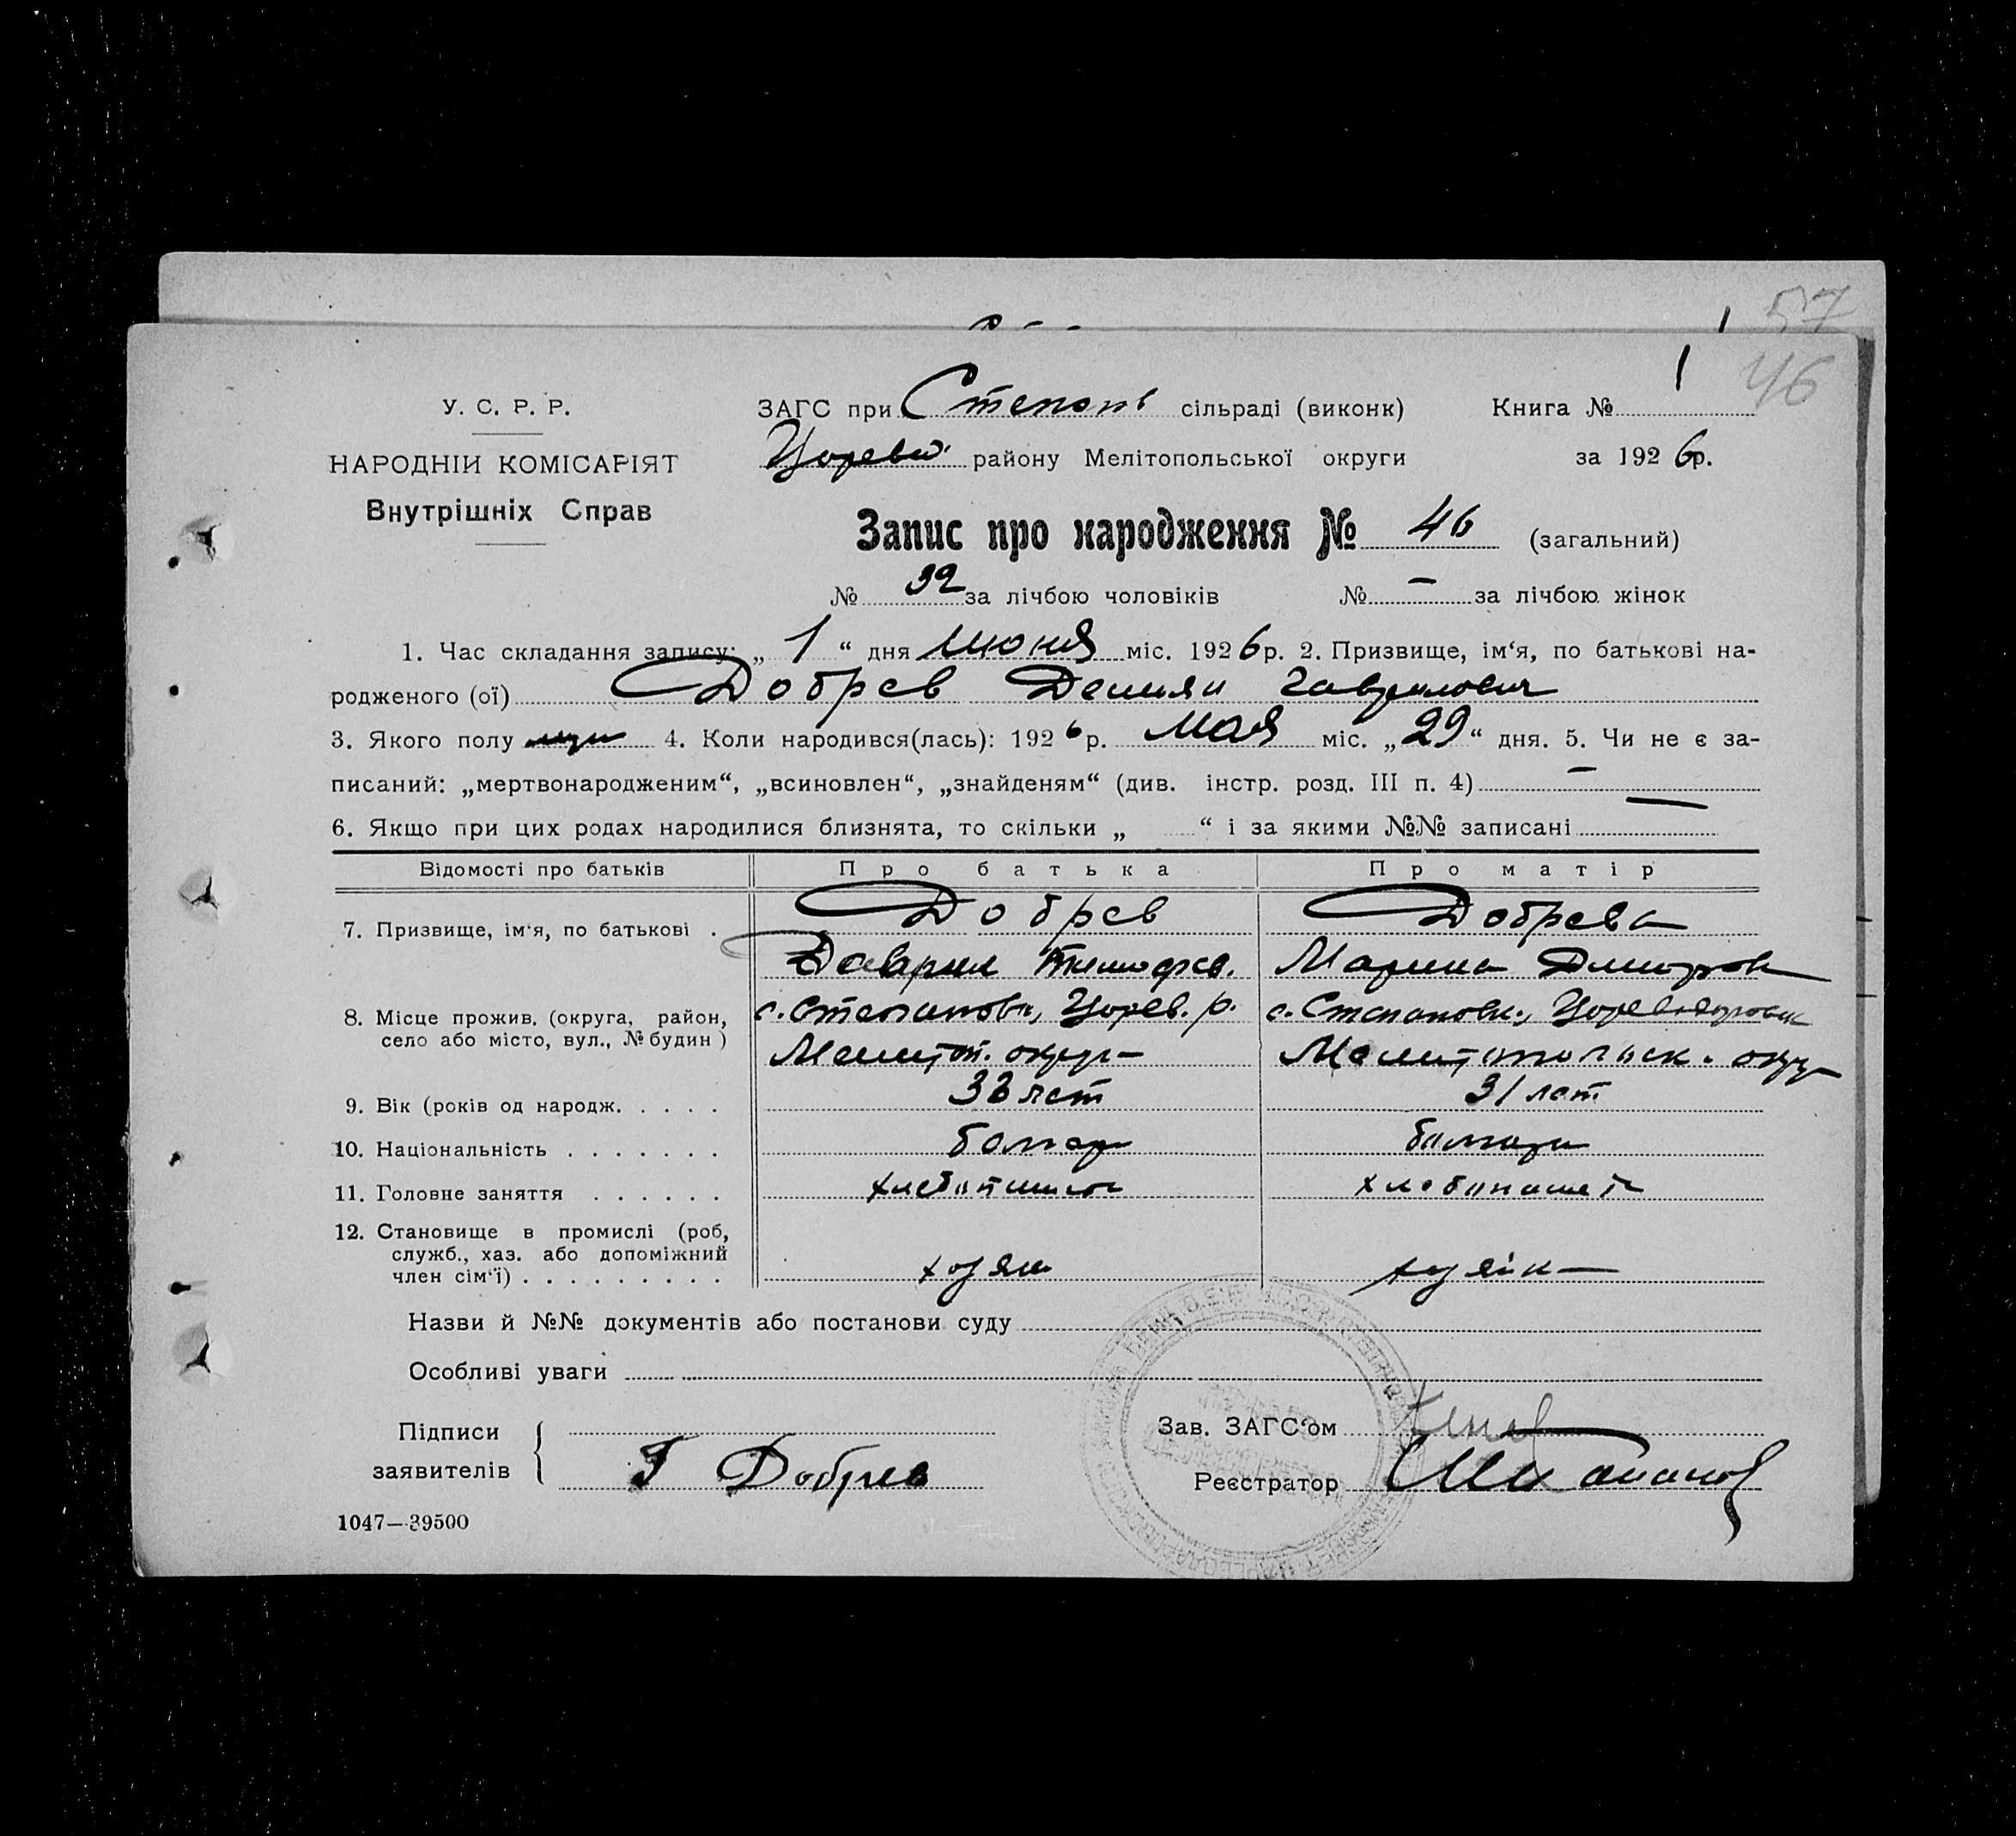 57
46
У. С. Р. Р.
НАРОДНІЙ КОМІСАРІЯТ
Внутрішніх Справ
ЗАГС при Степан. сільраді (виконк) Книга № 1
Царев. району Мелітопольської округи за 1926р.
Запис про народження № 46 (загальний)
№ 32 за лічбою чоловіків № — за лічбою жінок
1. Час складання запису: „ 1 “ дня июня міс. 1926р. 2. Призвище, ім‘я, по батькові на-
родженого (ої) Добрев Демиян Гаврилович
3. Якого полу муж 4. Коли народився(лась): 1926р. мая міс. „29“ дня. 5. Чи не є за-
писаний: „мертвонародженим“, „всиновлен“, „знайденям“ (див. інстр. розд. III п. 4) —
6. Якщо при цих родах народилися близнята, то скільки „ “ і за якими №№ записані —
Відомості про батьків Про батька Про матір
7. Призвище, ім‘я, по батькові . Добрев Добрева
Гаврил Тимофев. Марина Дмитров
8. Місце прожив. (округа, район, с. Степановк, Царев. р. с. Степановк.,
село або місто, вул., № будин) Мелит. округ Мелитопольск. округ
9. Вік (років од народж. . . . . 33 лет 31 лет
10. Національність . . . . . . . болгар болгари
11. Головне заняття . . . . . . хлебопашест хлебопашест
12. Становище в промислі (роб,
служб., хаз. або допоміжний
член сім‘ї) . . . . . . . . . хозяин хозяйк
Назви й №№ документів або постанови суду
Особливі уваги
Підписи
заявителів
Г Добрев
Зав. ЗАГС‘ом
Реєстратор
1047—39500